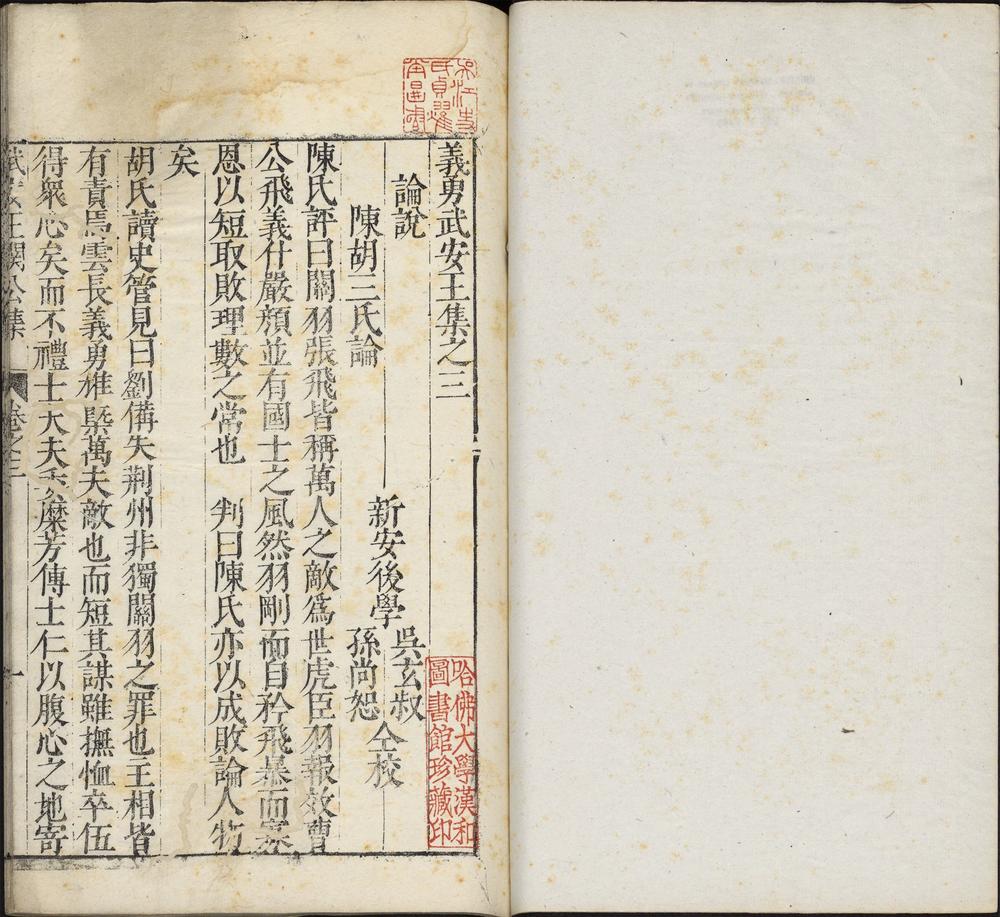 義勇武安王集之三
論說
新安後學
吳玄叔
孫尚恕
仝校
陳胡三氏論
陳氏評曰關羽張飛皆稱萬人之敵爲世虎臣羽報效曹
公飛義什嚴顏並有國士之風然羽剛而自矜飛暴而寡
恩以短取敗理數之常也 判曰陳氏亦以成敗論人物
矣
胡氏讀史管見曰劉備失荆州非獨關羽之罪也主相皆
有責焉雲長義勇雄槩萬夫敵也而短其謀雖撫恤卒伍
得衆心矣而不禮士大夫糜芳傅士仁以腹心之地寄
武安王關公集 卷之三 一
哈佛大學漢和
圖書館珍藏印